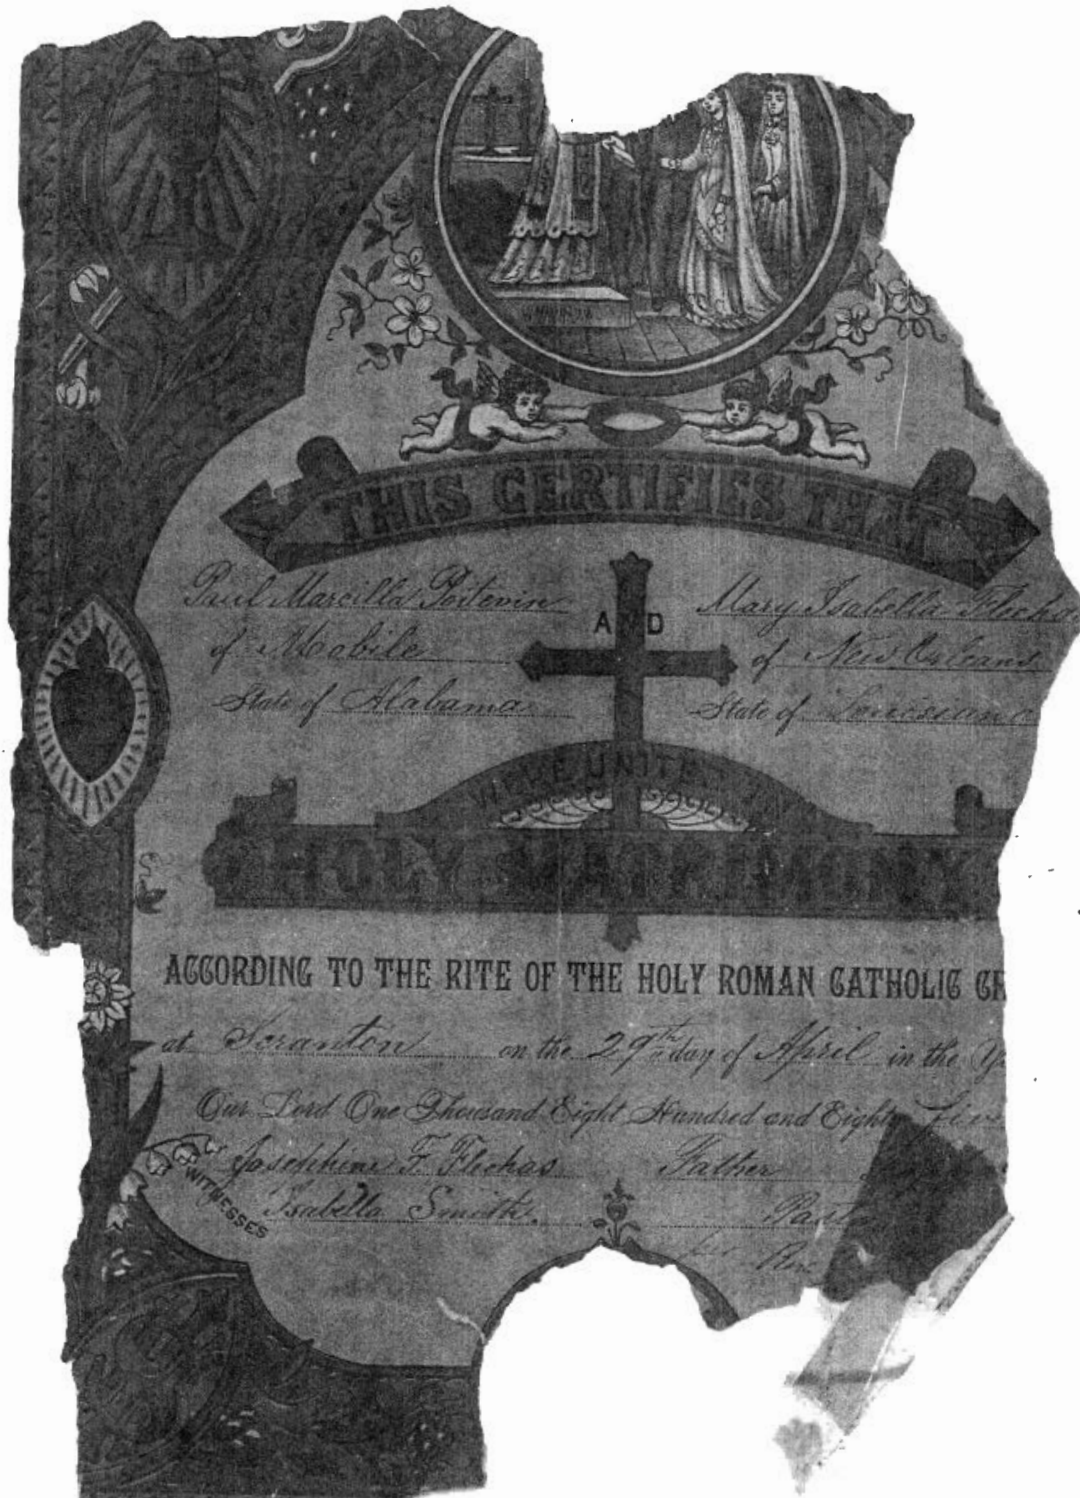 THIS CERTIFIES THAT
Paul Marcilla Poitevin AND Mary Isabella Flechas
of Mobile of New Orleans
State of Alabama State of Louisiana
WERE UNITED IN
HOLY MATRIMONY
ACCORDING TO THE RITE OF THE HOLY ROMAN CATHOLIC CH
at Scranton on the 29th day of April in the Y
Our Lord One Thousand Eight Hundred and Eighty five
Josephine F. Flechas Father
WITNESSES
Isabella Smith